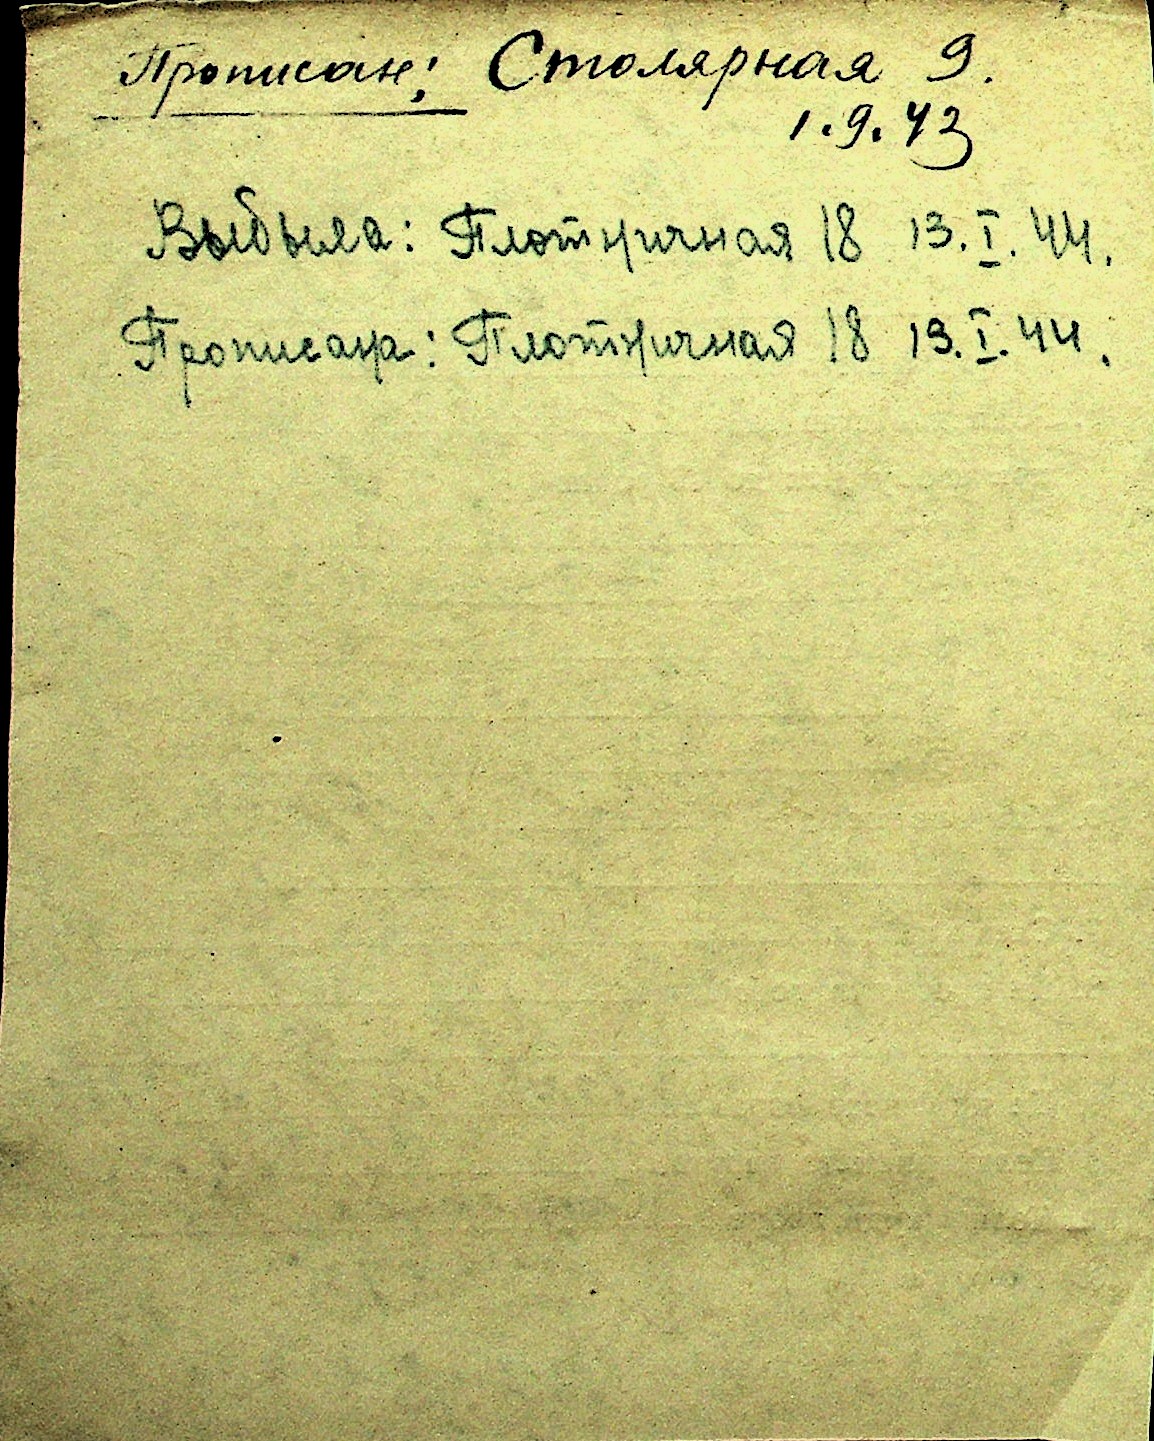 Прописан: Столярная 9.
1.9.43
Выбыла: Плотничная 18 13.I.44.
Прописана: Плотничная 18 13.I.44.